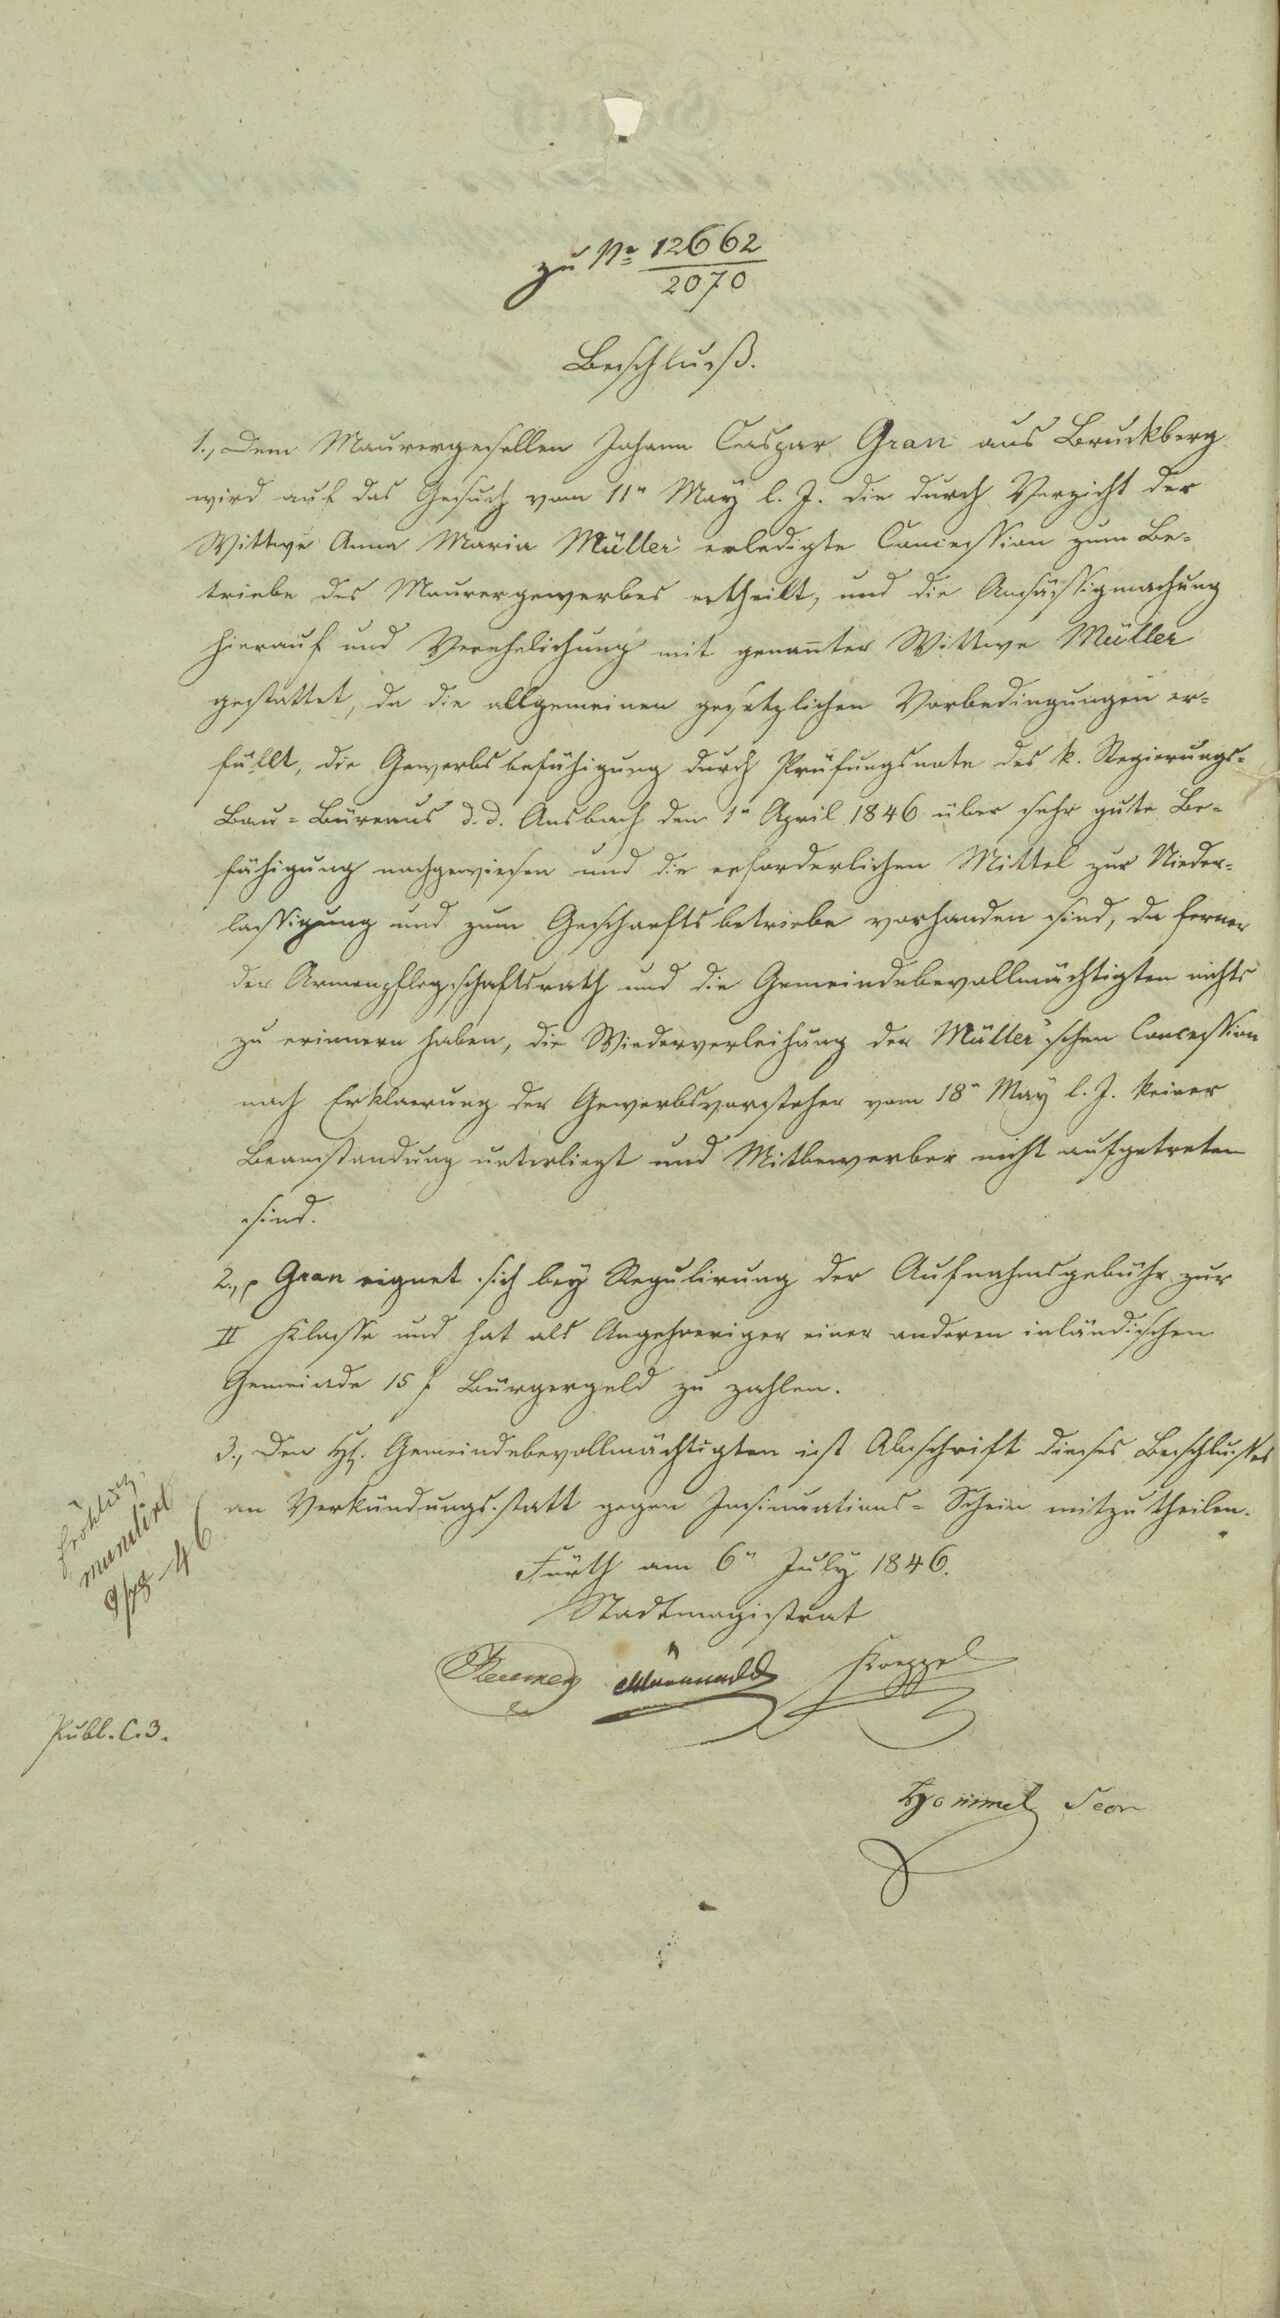 zu No 12662
2070
Beschluß.
1., Dem Maurergesellen Johann Caspar Gran aus Bruckberg
wird auf das Gesuch vom 11n May l. J. die durch Verzicht der
Wittwe Anna Maria Müller erledigte Concession zum Be-
triebe des Maurergewerbes ertheilt, und die Ansässigmachung
hierauf und Verehelichung mit genanter Wittwe Müller
gestattet, da die allgemeinen gesetzlichen Vorbedingungen er-
füllt, die Gewerbsbefähigung durch Prüfungsnote des k. Regierungs-
Bau-Büreaus d. d. Ansbach den 1n April 1846 über sehr gute Be-
fähigung nachgewiesen und die erforderlichen Mittel zur Nieder-
lassigung und zum Geschaeftsbetriebe vorhanden sind, da ferner
der Armenpflegschaftsrath und die Gemeindebevollmächtigten nichts
zu erinnern haben, die Wiederverleihung der Müller'schen Concession
nach Erklaerung der Gewerbsvorsteher vom 18n May l. J. keiner
Beanstandung unterliegt und Mitbewerber nicht aufgetreten
sind.
2., p Gran eignet sich bey Regulirung der Aufnahmsgebühr zur
II Klasse und hat als Angehoeriger einer anderen inländischen
Gemeinde 15 f Bürgergeld zu zahlen.
3., Den HH. Gemeindebevollmächtigten ist Abschrift dieses Beschlußes
an Verkündungsstatt gegen Insinuations-Schein mitzutheilen.
Fürth am 6n July 1846.
Stadtmagistrat
Koeppel
Hommel Secr
mundirt
9/7 46
Publ. C. 3.